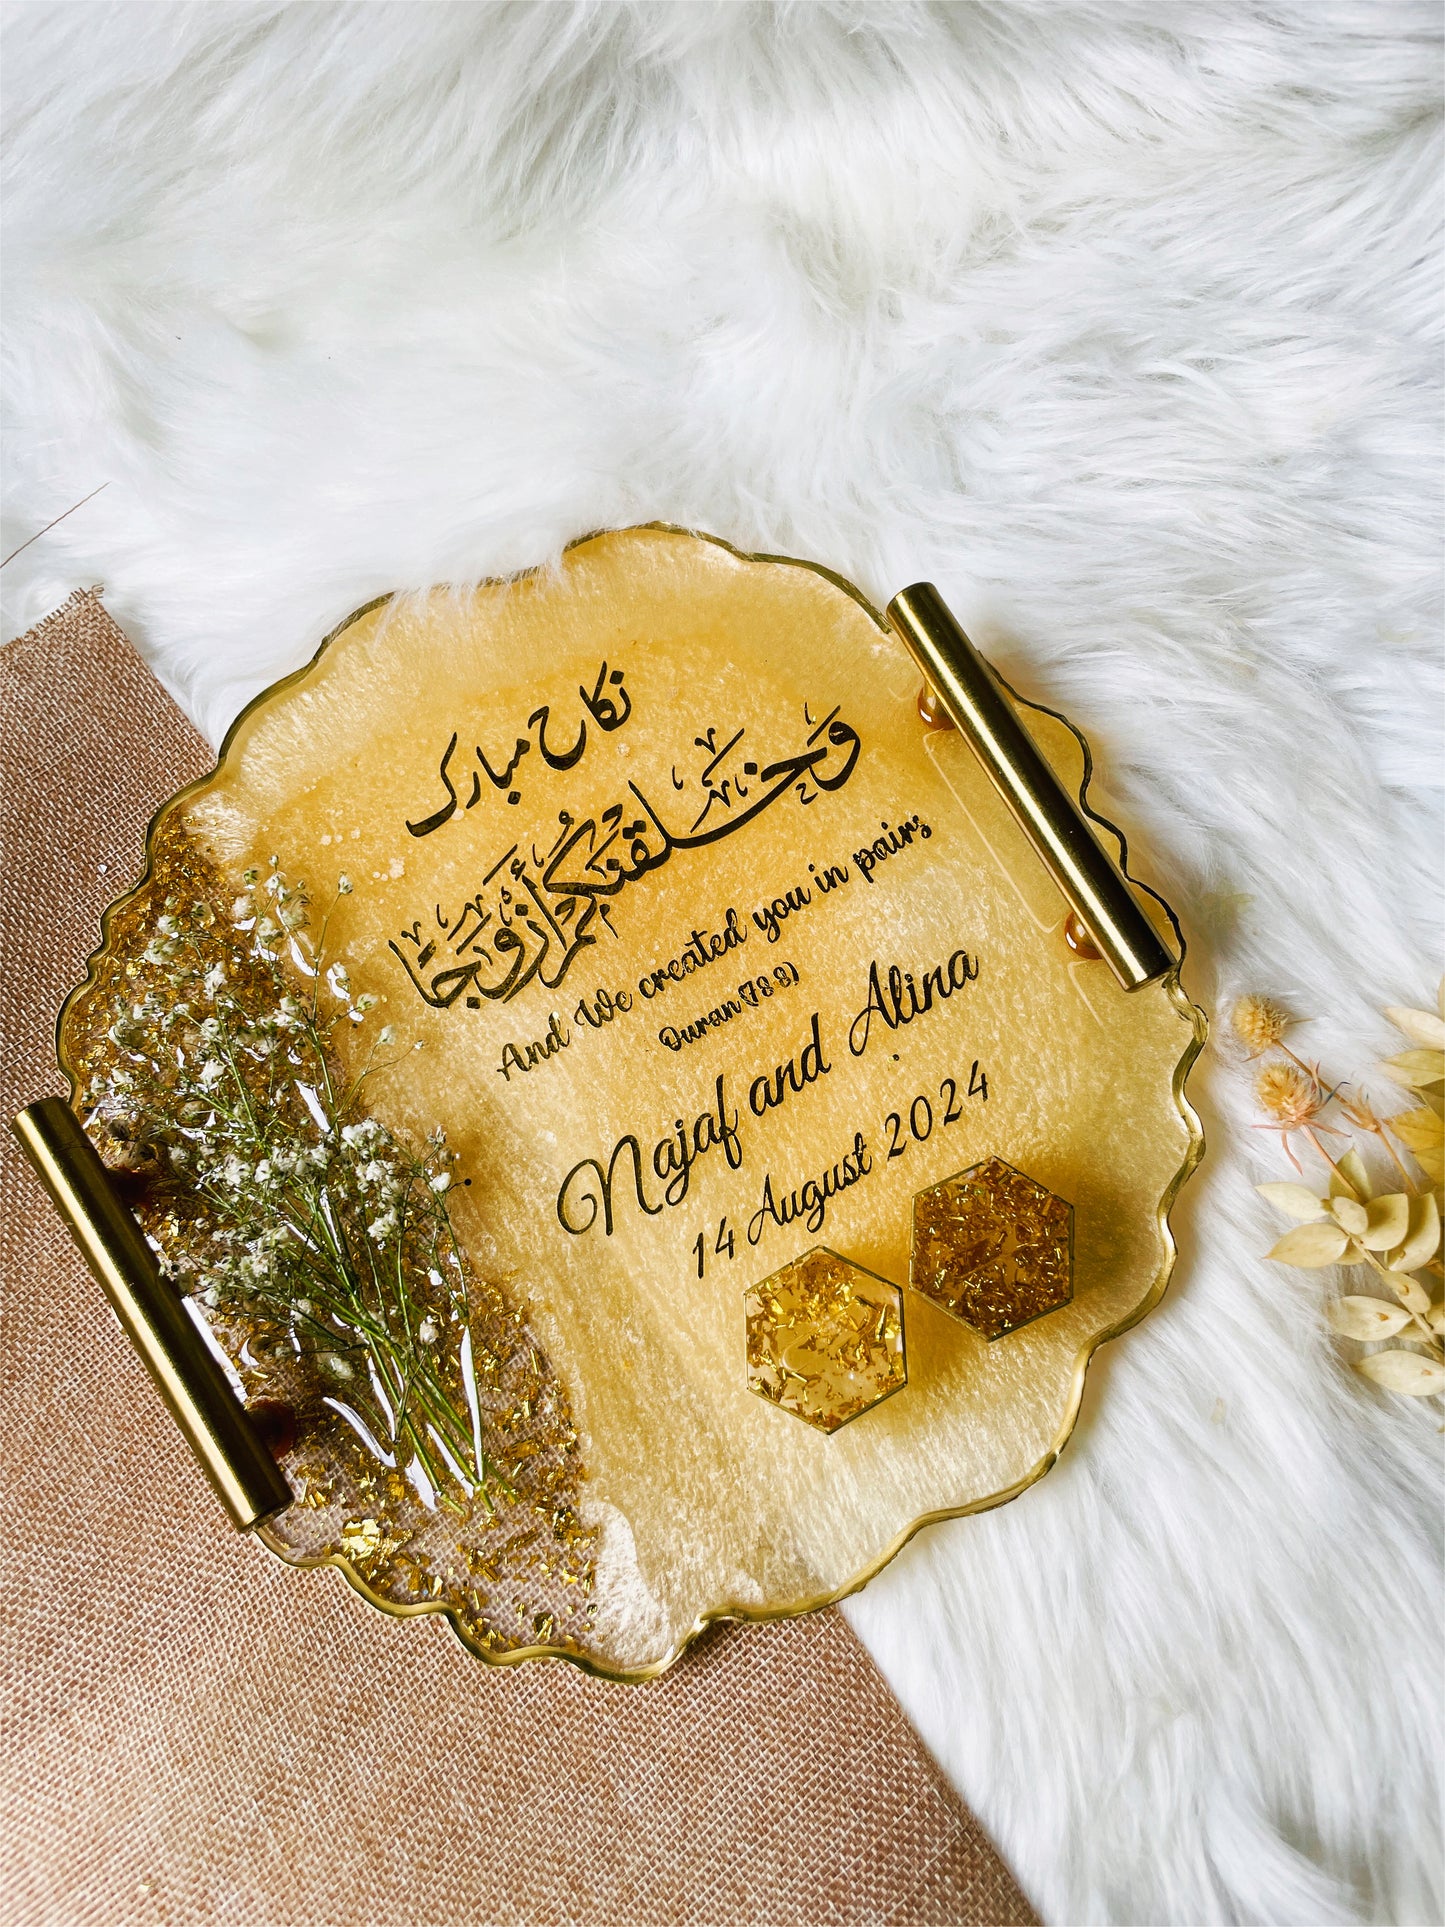 نکاح مبارک
وَخَلَقْنَٰكُمْ أَزْوَٰجًا
And We created you in pairs
Quran(78 8)
Najaf and Alina
14 August 2024